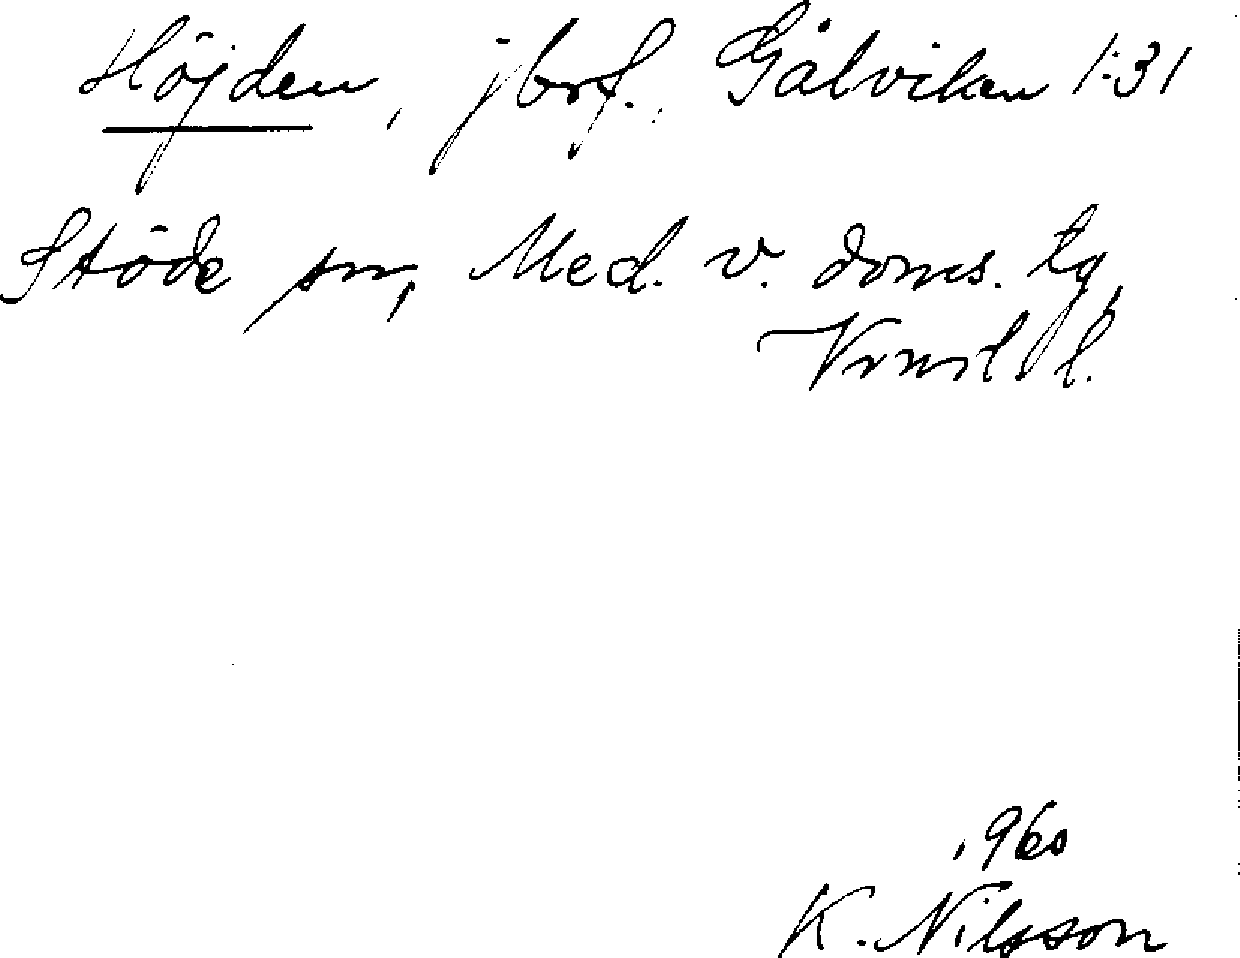 Höjden, jbrf., Gålviken 1:31
Stöde sn, Med. v. doms. tg,
Vrnrl l.
1960
K. Nilsson